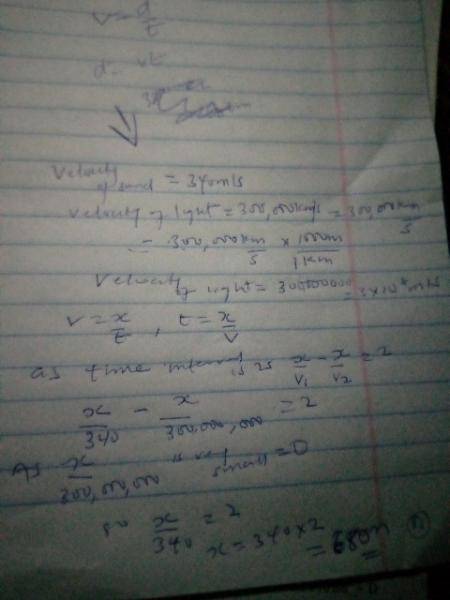 V = d/t
d = vt
Velocity of sound = 340m/s
Velocity of light = 300,000km/s = 300,000km/s
= 300,000km/s × 1000m/1km
Velocity of light = 300000000 = 3×10⁸m/s
v = x/t , t = x/v
as time interval is 2s x/v₁ - x/v₂ = 2
x/340 - x/300,000,000 = 2
As x/300,000,000 is very small = 0
so x/340 = 2
x = 340×2
= 680m